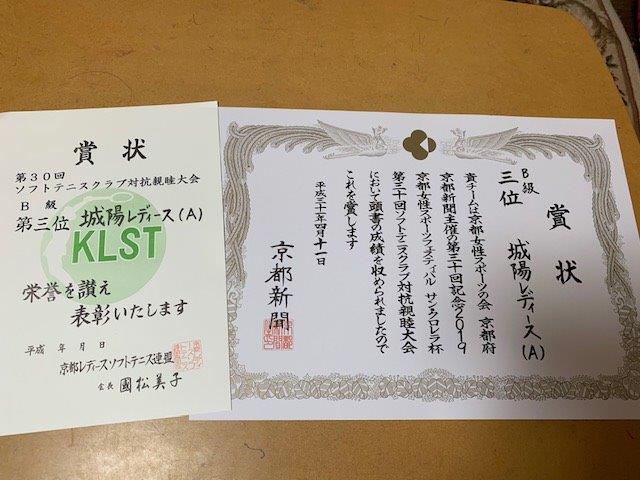 賞状
第30回
ソフトテニスクラブ対抗親睦大会
B 級
第三位 城陽レディース(A)
KLST
栄誉を讃え
表彰いたします
平成 年 月 日
京都レディースソフトテニス連盟
会長 國松美子
賞状
B級
三位 城陽レディース(A)
貴チームは京都女性スポーツの会 京都府
京都新聞主催の第三十回記念2019
京都女性スポーツフェスティバル サンクロレラ杯
第三十回ソフトテニスクラブ対抗親睦大会
において頭書の成績を収められましたので
これを賞します
平成三十一年四月十一日
京都新聞